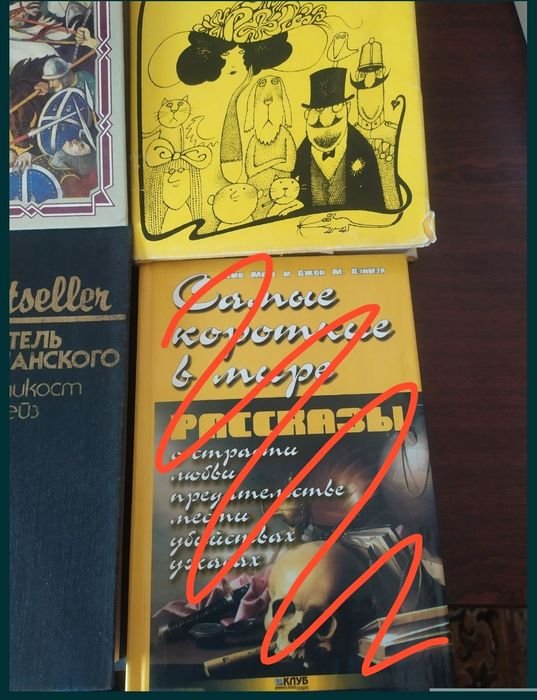 tseller
ТЕЛЬ
АНСКОГО
икост
ейз
М. ДЭНМЭЯ
Самые
короткие
в мире
РАССКАЗЫ
о страсти
любви
предательстве
мести
убийствах
ужасах
КЛУБ